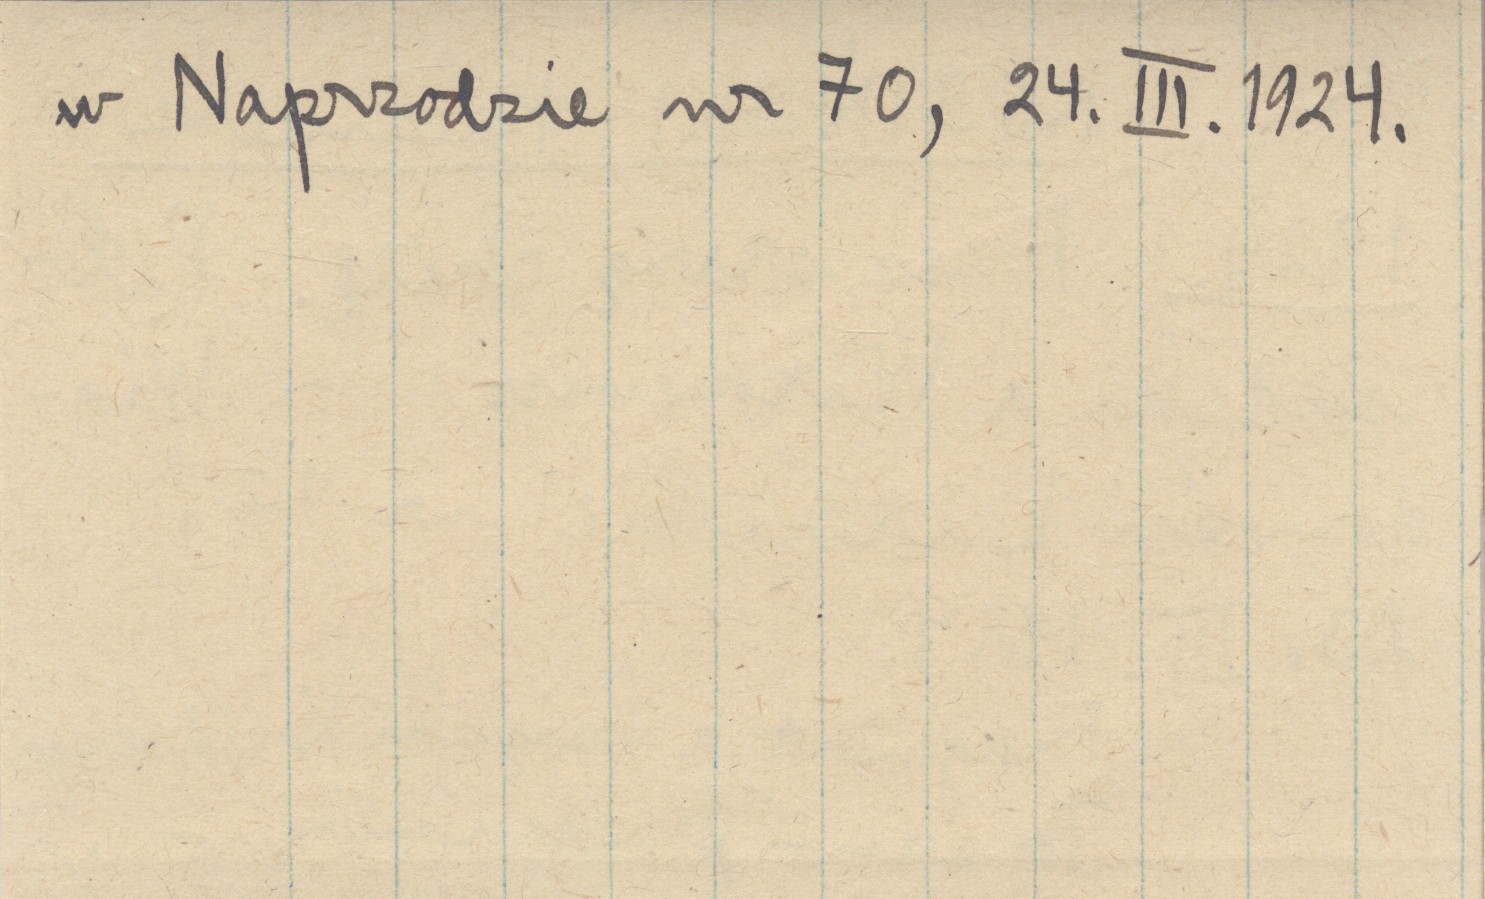 w Naprzodzie nr 70, 24. III. 1924.